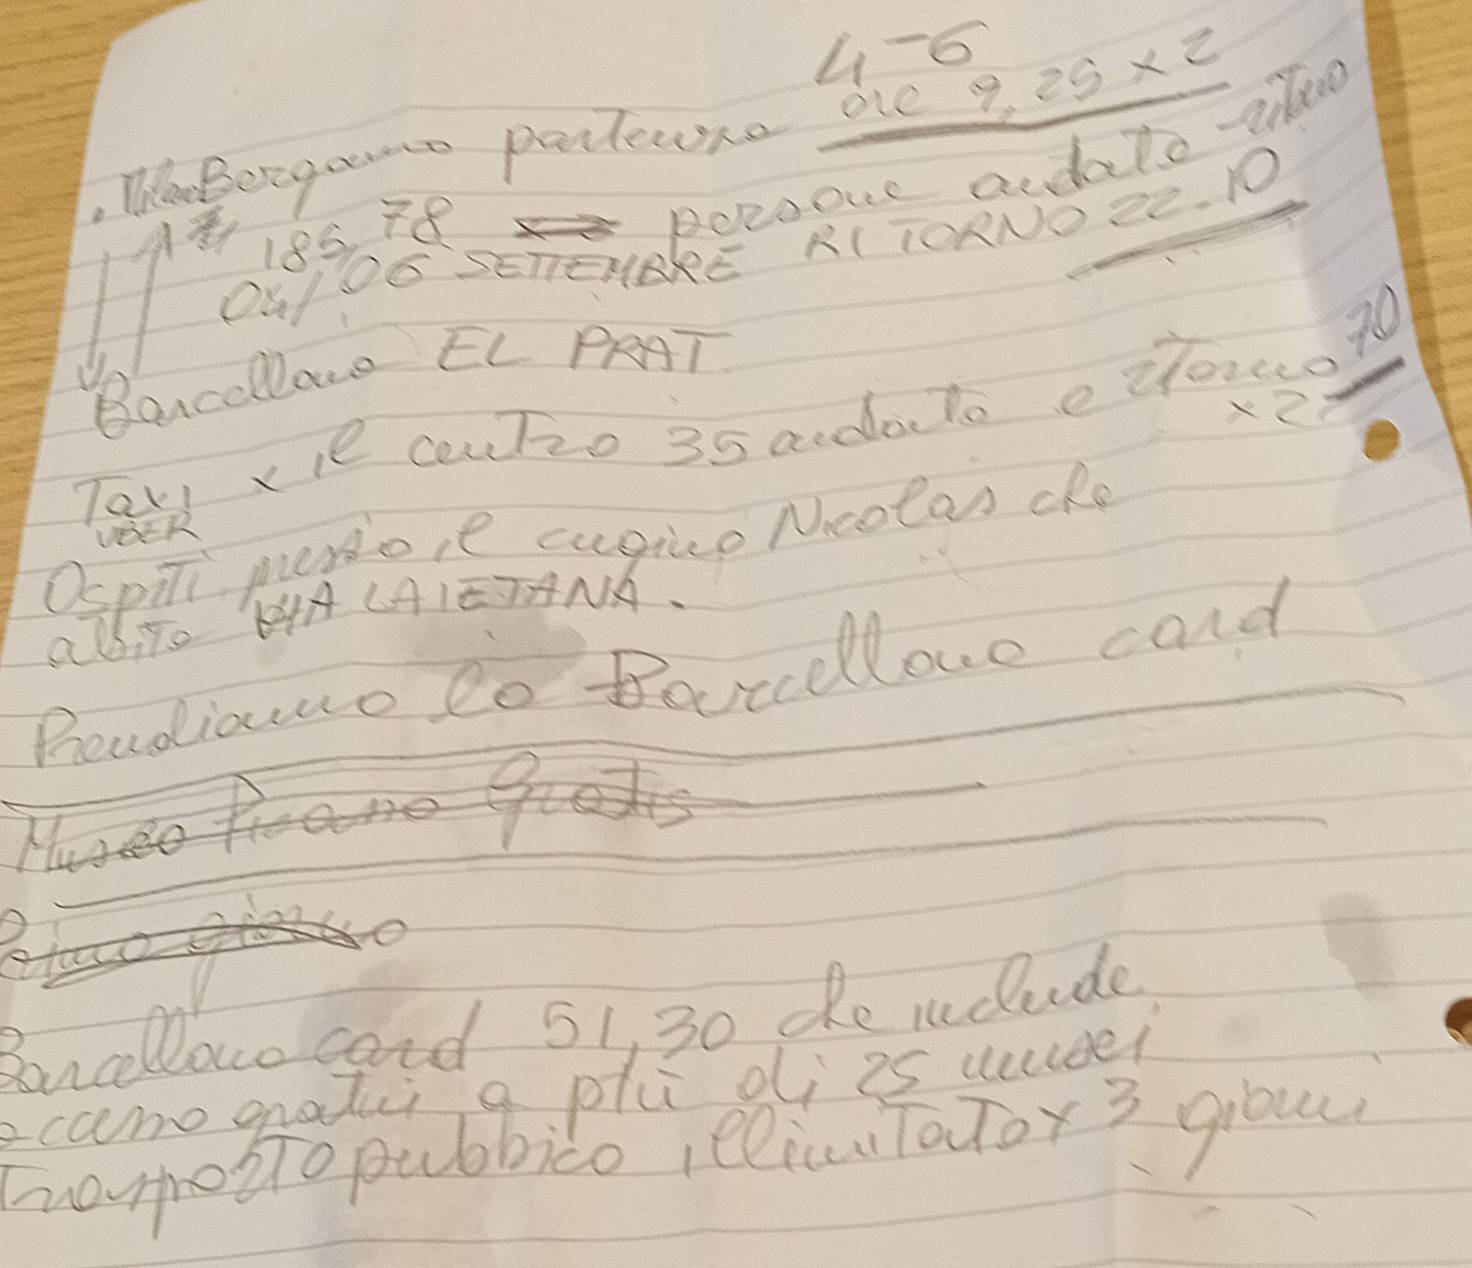 4-6
. Milano Bergamo partenza ore 9,25 x 2
185,78 persone andata ritorno
04/06 SETTEMBRE RITORNO 22.10
Barcellona EL PRAT
Taxi x il centro 35 andata e ritorno 70
UBER x 2
Ospiti presso il cugino Nicolas che
abita VIA LAIETANA.
Prendiamo la Barcellona card
Museo Picasso gratis
Primo giorno
Barcellona card 51,30 che include
accesso gratui a più di 25 musei
Trasporto pubbico illimitato x 3 giorni